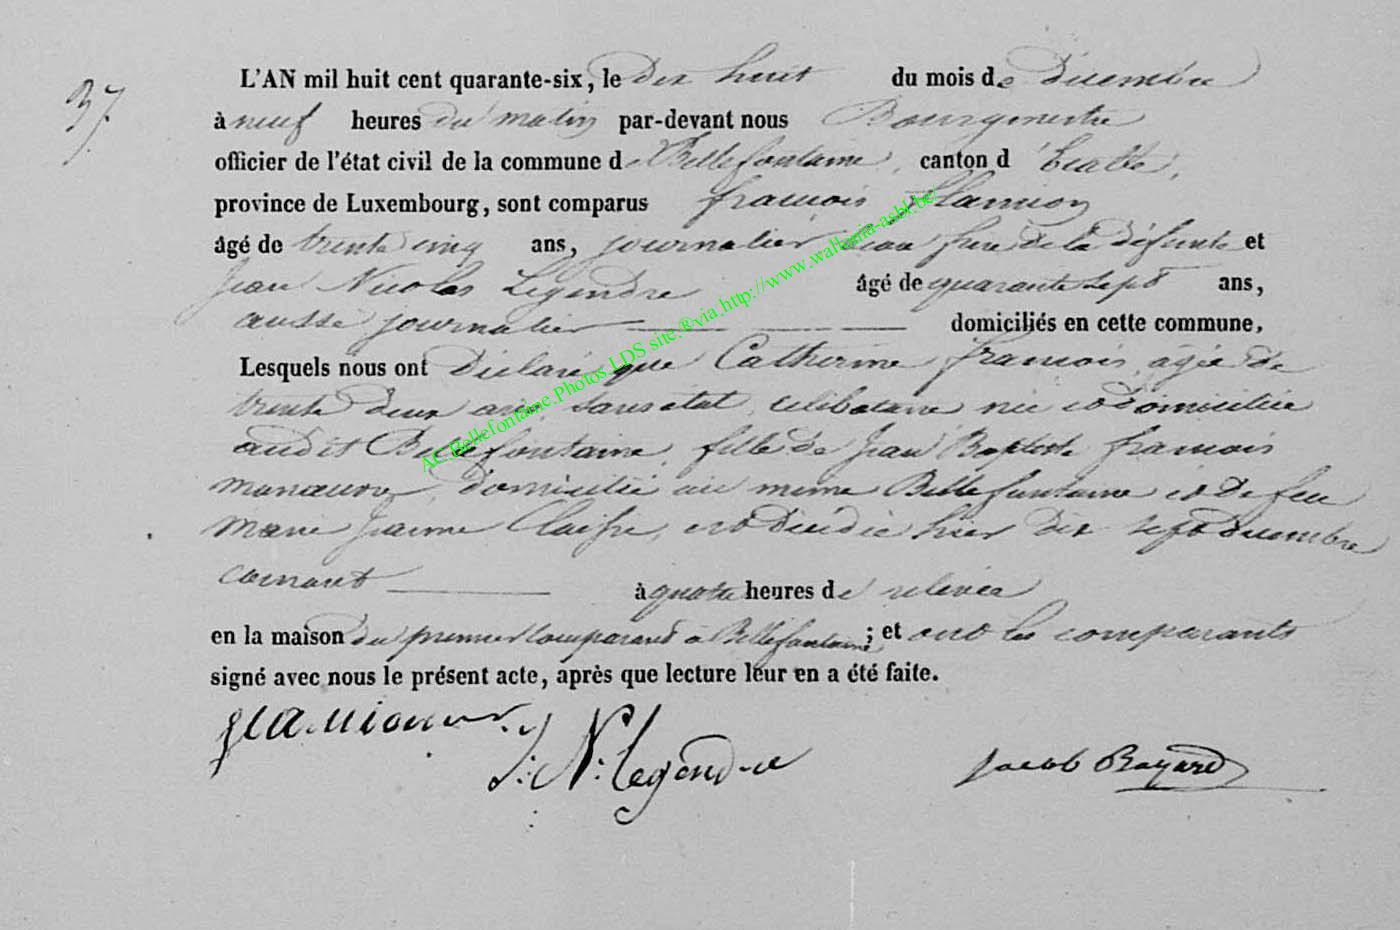 37
L'AN mil huit cent quarante-six, le dix huit du mois de décembre
à neuf heures du matin par-devant nous Bourgmestre
officier de l'état civil de la commune de Bellefontaine, canton d'Etalle,
province de Luxembourg, sont comparus françois flamion
âgé de trente cinq ans, journalier beau frere de la défunte et
Jean Nicolas Legendre âgé de quarante sept ans,
aussi journalier domiciliés en cette commune,
Lesquels nous ont déclaré que Catherine françois, agée de
trente deux ans sans état, celibataire née et domiciliée
audit Bellefontaine, fille de Jean Baptiste françois
manoeuvre, domicilié au meme Bellefontaine et de feu
Marie Jeanne, est décédée hier dix sept decembre
courant à quatre heures de relevée
en la maison du premier comparant à Bellefontaine; et ont les comparants
signé avec nous le présent acte, après que lecture leur en a été faite.
J: N: legendre Jacob Bayard
AC.Bellefontaine.Photos.LDS site.®via.http://www.wallonia-asbl.be/